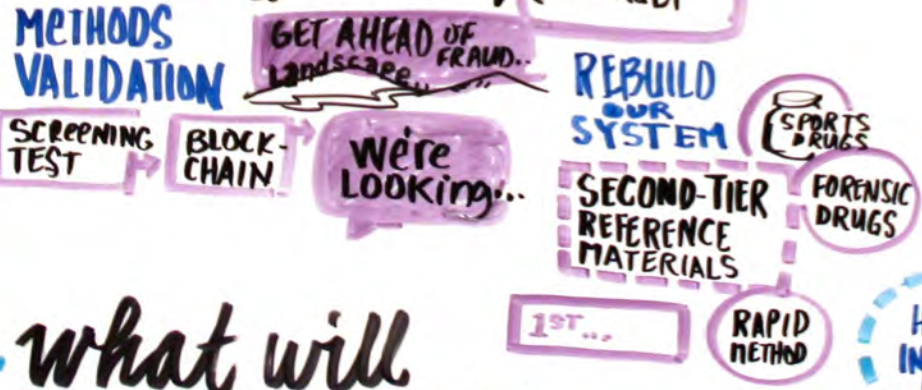 METHODS
VALIDATION
GET AHEAD OF
FRAUD..
Landscape...
SCREENING
TEST
BLOCK-
CHAIN
We're
LOOKING...
REBUILD
OUR
SYSTEM
SPORTS
DRUGS
SECOND-TIER
REFERENCE
MATERIALS
FORENSIC
DRUGS
1ST...
RAPID
METHOD
what will
IN